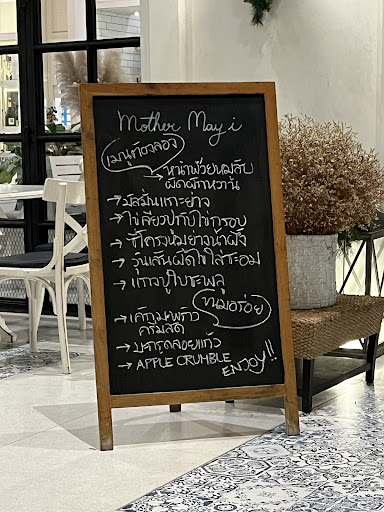 Mother May i
เมนูต้องลอง
→ หน่ำพ้วยหมูสับ
ผัดผักหวาน
→ มัสมั่นแกะย่าง
→ ไข่เยี่ยวม้าไข่กรอบ
→ ซี่โครงหมูย่างน้ำผึ้ง
→ วุ้นเส้นผัดไข่ใส่ชะอม
→ แกงปูใบชะพลู
ขนมอร่อย
→ เค้กมะพร้าว
ครีมสด
→ มะกรูดลอยแก้ว
→ APPLE CRUMBLE
ENJOY!!